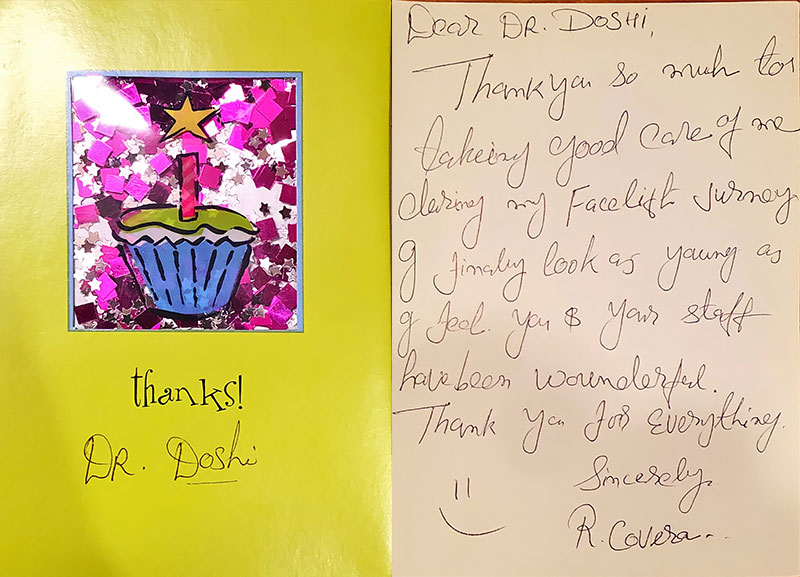 thanks!
DR. Doshi
Dear DR. DOSHI,
Thank you so much for
takeing good care of me
during my Facelift Jurney
I finaly look as young as
I feel. You & your staff
have been wounderful.
Thank you for Everything.
Sincerely,
R. Covera